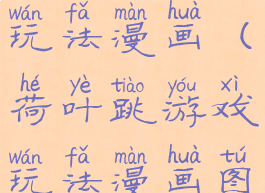 wán fǎ màn huà
玩法漫画（
hé yè tiào yóu xì
荷叶跳游戏
wán fǎ màn huà tú
玩法漫画图